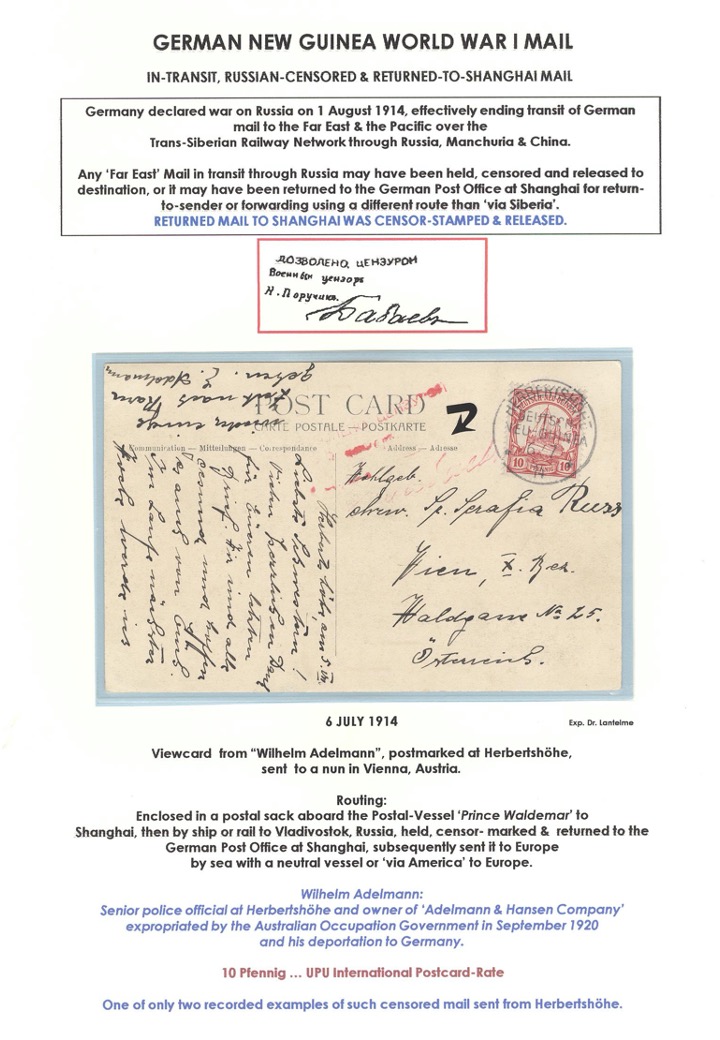 GERMAN NEW GUINEA WORLD WAR I MAIL
IN-TRANSIT, RUSSIAN-CENSORED & RETURNED-TO-SHANGHAI MAIL
Germany declared war on Russia on 1 August 1914, effectively ending transit of German
mail to the Far East & the Pacific over the
Trans-Siberian Railway Network through Russia, Manchuria & China.
Any ‘Far East’ Mail in transit through Russia may have been held, censored and released to
destination, or it may have been returned to the German Post Office at Shanghai for return-
to-sender or forwarding using a different route than ‘via Siberia’.
RETURNED MAIL TO SHANGHAI WAS CENSOR-STAMPED & RELEASED.
ДОЗВОЛЕНО ЦЕНЗУРОЙ
Военный цензоръ
Н. Поручикъ.
Бабаевъ
POST CARD
CARTE POSTALE — POSTKARTE
Communication — Mitteilungen — Correspondance
Address — Adresse
10 10
Wohlgeb.
ehrw. Sr. Serafia Russ
Wien, X. Bez.
Waldgasse No 25.
Österreich.
Liebste Schwester!
Vielen herzlichen Dank
für Eueren letzten
Brief. Wir sind alle
gesund und hoffen
Im Laufe nächster
6 JULY 1914
Exp. Dr. Lantelme
Viewcard from “Wilhelm Adelmann”, postmarked at Herbertshöhe,
sent to a nun in Vienna, Austria.
Routing:
Enclosed in a postal sack aboard the Postal-Vessel ‘Prince Waldemar’ to
Shanghai, then by ship or rail to Vladivostok, Russia, held, censor- marked & returned to the
German Post Office at Shanghai, subsequently sent it to Europe
by sea with a neutral vessel or ‘via America’ to Europe.
Wilhelm Adelmann:
Senior police official at Herbertshöhe and owner of ‘Adelmann & Hansen Company’
expropriated by the Australian Occupation Government in September 1920
and his deportation to Germany.
10 Pfennig ... UPU International Postcard-Rate
One of only two recorded examples of such censored mail sent from Herbertshöhe.